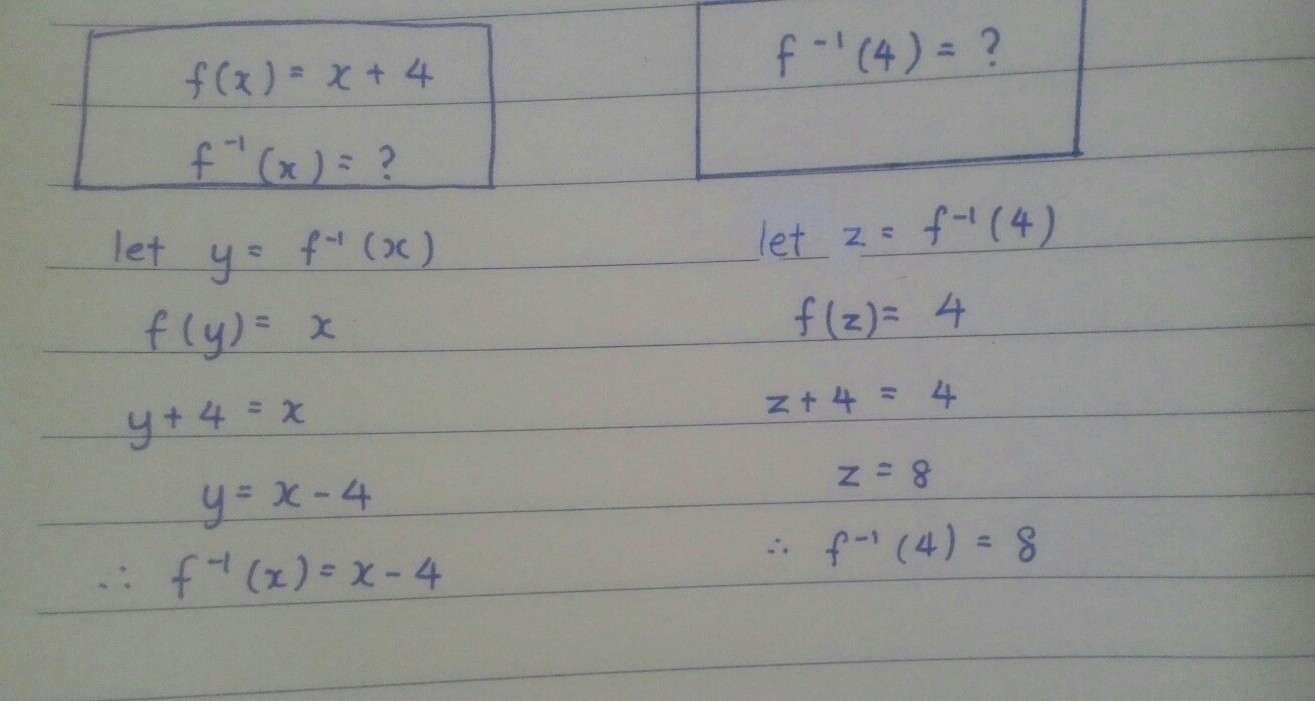 f(x) = x + 4
f⁻¹(x) = ?
let y = f⁻¹(x)
f(y) = x
y + 4 = x
y = x - 4
∴ f⁻¹(x) = x - 4
f⁻¹(4) = ?
let z = f⁻¹(4)
f(z) = 4
z + 4 = 4
z = 8
∴ f⁻¹(4) = 8